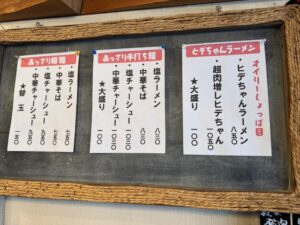 あっさり細麺
・塩ラーメン 七五〇
・中華そば 七五〇
・塩チャーシュー 九五〇
・中華チャーシュー 九五〇
★替玉 一五〇
あっさり手打ち麺
・塩ラーメン 八三〇
・中華そば 八三〇
・塩チャーシュー 一〇三〇
・中華チャーシュー 一〇三〇
★大盛り 一〇〇
ヒデちゃんラーメン
オイリーしょっぱ
・ヒデちゃんラーメン 八五〇
・超肉増しヒデちゃん 一〇五〇
★大盛り 一〇〇